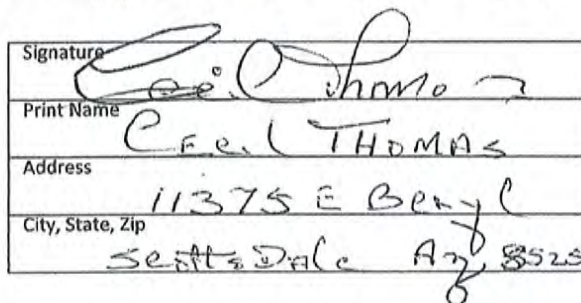 Signature
Cecil Thomas
Print Name
Cecil THOMAS
Address
11375 E Beryl
City, State, Zip
Scottsdale Az, 8525